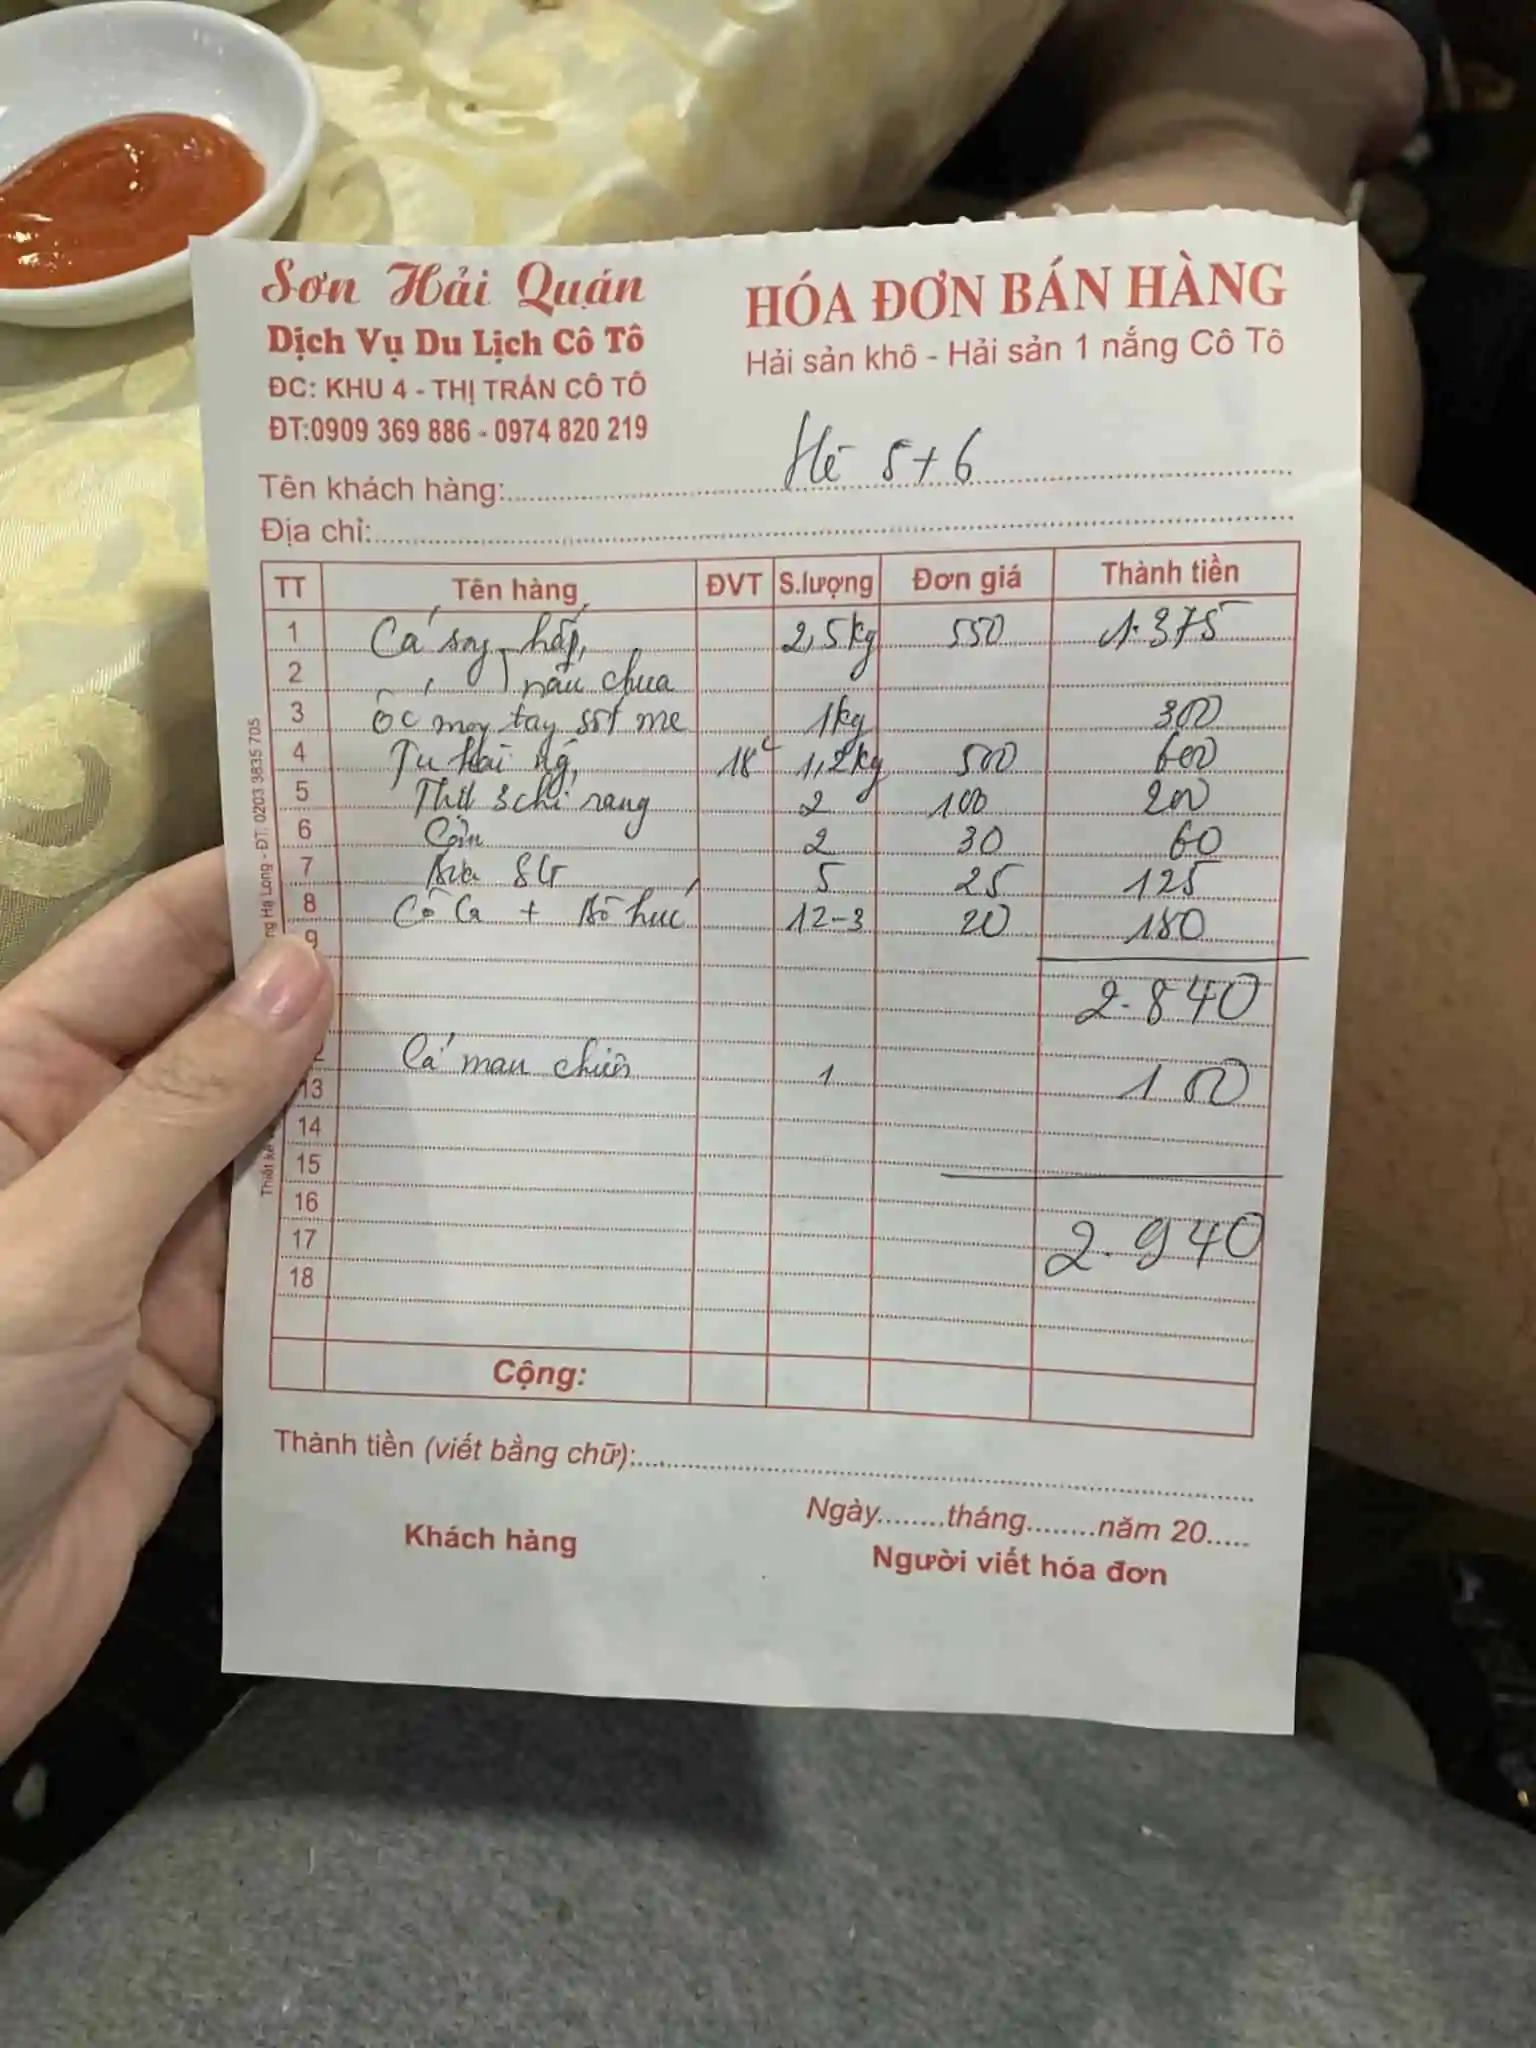 Sơn Hải Quán
Dịch Vụ Du Lịch Cô Tô
ĐC: KHU 4 - THỊ TRẤN CÔ TÔ
ĐT:0909 369 886 - 0974 820 219
HÓA ĐƠN BÁN HÀNG
Hải sản khô - Hải sản 1 nắng Cô Tô
Tên khách hàng: 5+6
Địa chỉ:
TT Tên hàng ĐVT S.lượng Đơn giá Thành tiền
1 Cá song hấp, 2,5kg 550 1.375
2 nấu chua
3 Ốc móng tay sốt me 1kg 300
4 Tu hài 18c 1,2kg 500 600
5 Thịt 3 chỉ rang 2 100 200
6 2 30 60
7 Bia SG 5 25 125
8 Cô Ca + Bò húc 12-3 20 180
9
2.840
Cá mau chiên 1 100
13
14
15
16
17 2.940
18
Cộng:
Thành tiền (viết bằng chữ):
Ngày........tháng........năm 20.....
Khách hàng
Người viết hóa đơn
ng Hạ Long - ĐT: 0203 3835 705
Thiết kế